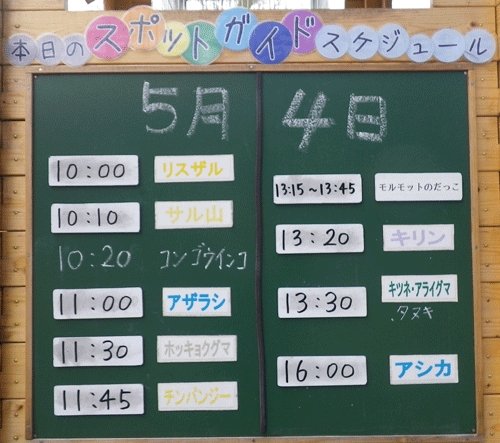 本日のスポットガイドスケジュール
5月 4日
10:00 リスザル
10:10 サル山
10:20 コンゴウインコ
11:00 アザラシ
11:30 ホッキョクグマ
11:45 チンパンジー
13:15～13:45 モルモットのだっこ
13:20 キリン
13:30 キツネ・アライグマ
・タヌキ
16:00 アシカ